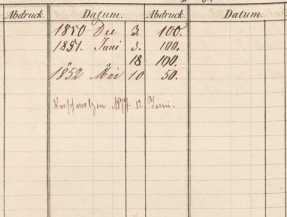 Abdruck. Datum. Abdruck. Datum.
1850 Dec 3. 100.
1851. Juni 3. 100.
18 100.
1852 Mei 10 50.
12 Juni.